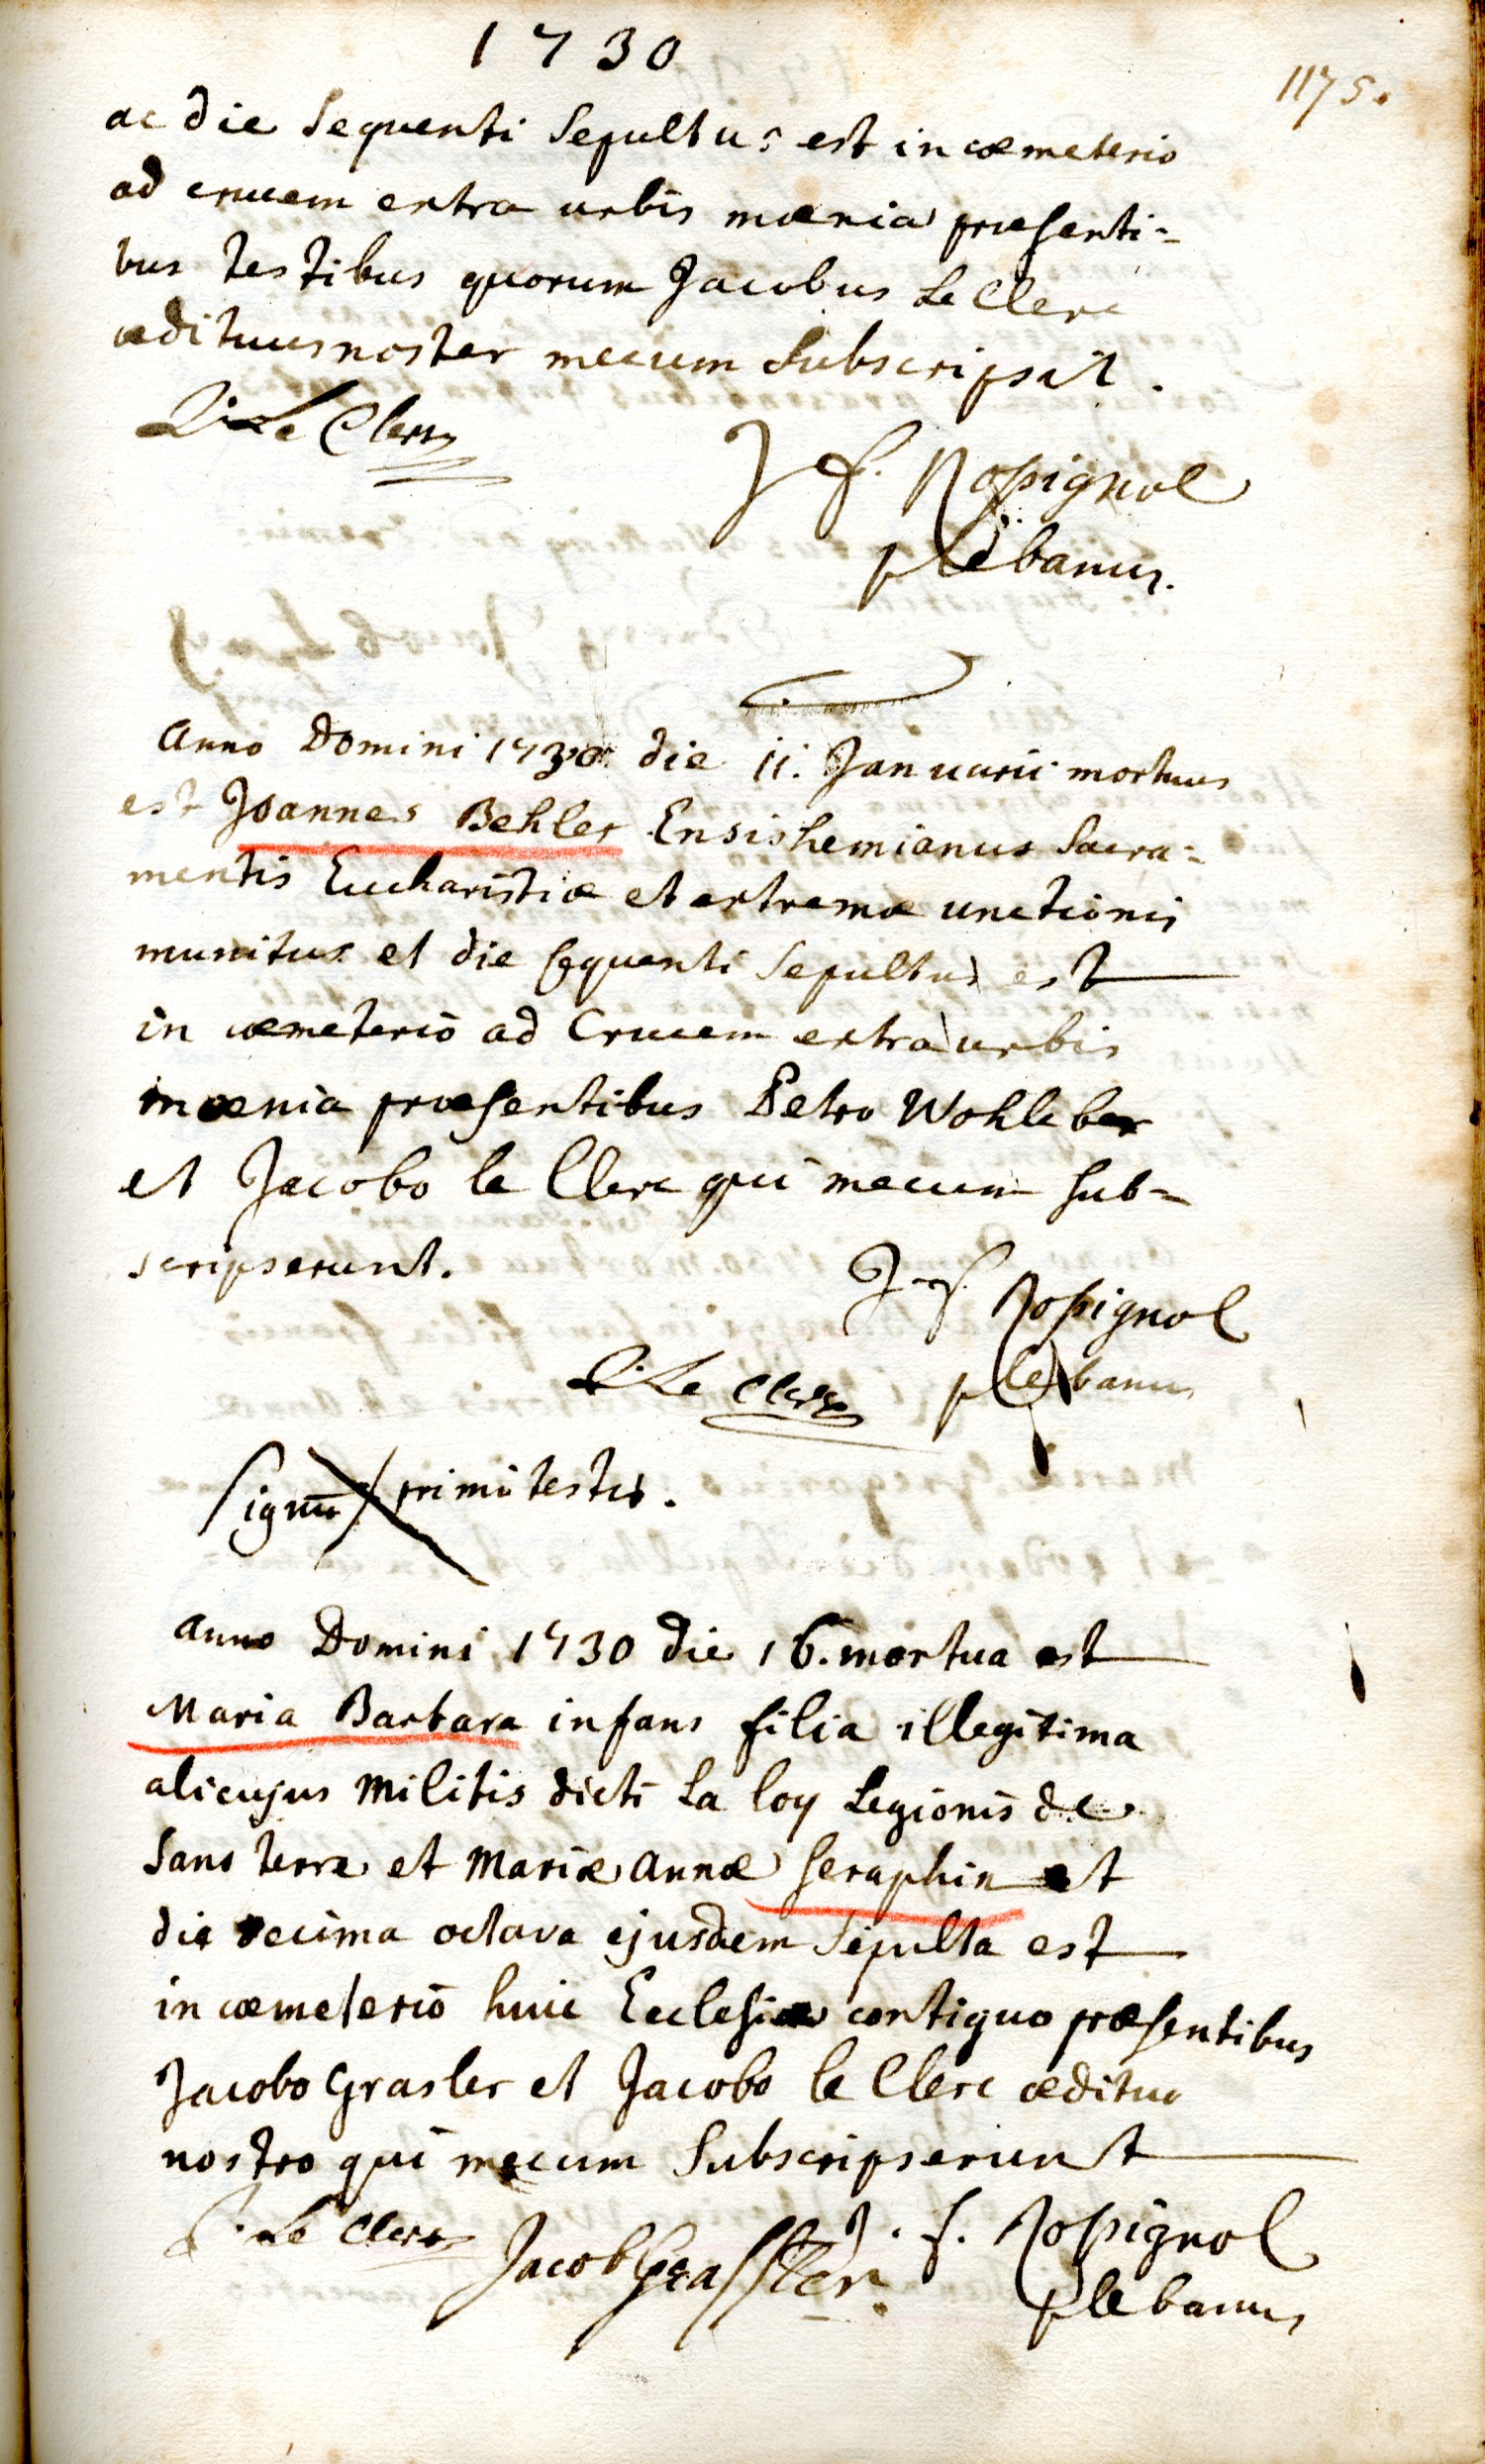 1730
1175.
ac die sequenti sepultus est in cœmeterio
ad crucem extra urbis mœnia præsenti=
bus testibus quorum Jacobus Le Clerc
ædituus noster mecum subscripsit.
Le Clerc
J f. Rossignol
plebanus.
Anno Domini 1730 die 11. Januarii mortuus
est Joannes Behler Ensishemianus Sacra=
mentis Eucharistiæ et extremæ unctionis
munitus et die sequenti sepultus est
in cœmeterio ad Crucem extra urbis
mœnia præsentibus Petro Wohleber
et Jacobo le Clerc qui mecum sub=
scripserunt.
J f Rossignol
Le Clerc
plebanus
Signū primi testis.
Anno Domini 1730 die 16. mortua est
Maria Barbara infans filia illegitima
alicujus militis dicti La loy Legionis de
Sans terre et Mariæ Annæ Seraphin et
die decima octava ejusdem sepulta est
in cœmeterio huic Ecclesiæ contiguo præsentibus
Jacobo Grasler et Jacobo le Clerc ædituo
nostro qui mecum subscripserunt
Le Clerc Jacob Grassler J. f. Rossignol
plebanus